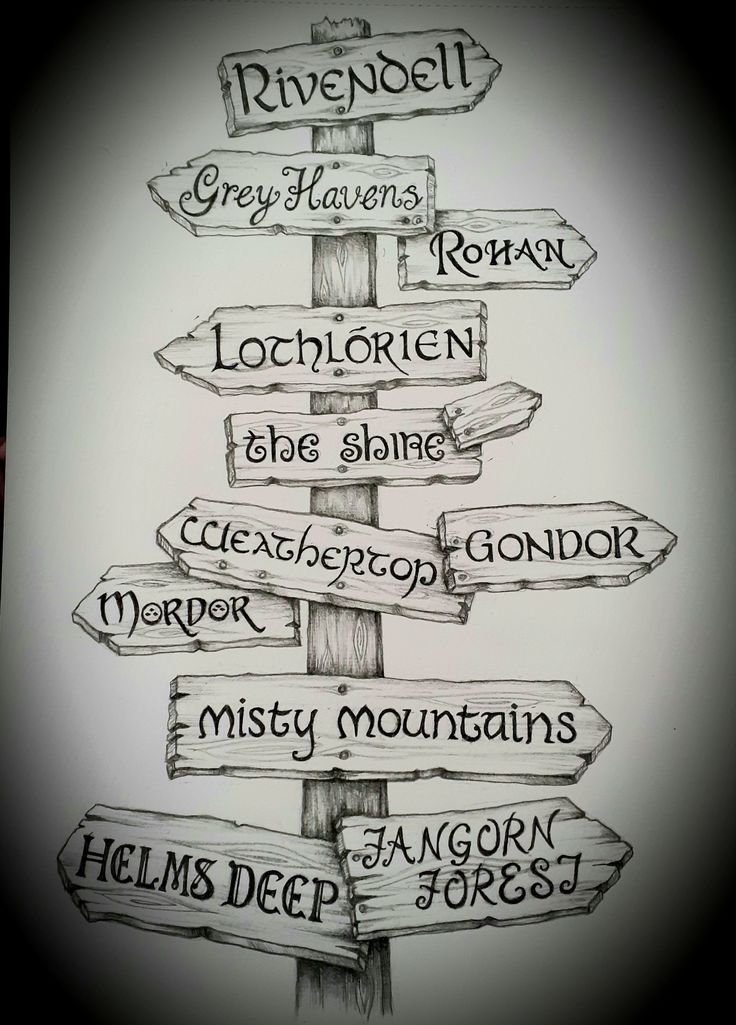 Rivendell
Grey Havens
Rohan
Lothlórien
the shire
Weathertop
Gondor
Mordor
misty mountains
HELMS DEEP
FANGORN
FOREST